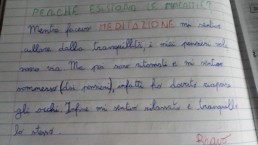 PERCHÉ ESISTONO LE MACCHINE?
Mentre facevo MEDITAZIONE mi sentivo
cullare dalla tranquillità, i miei pensieri
via Ma poi sono ritornati e mi sentivo
sommerso (dai pensieri), infatti ho dovuto
gli occhi Infine mi sentivo rilassato e tranquillo
lo stesso.
Bravo